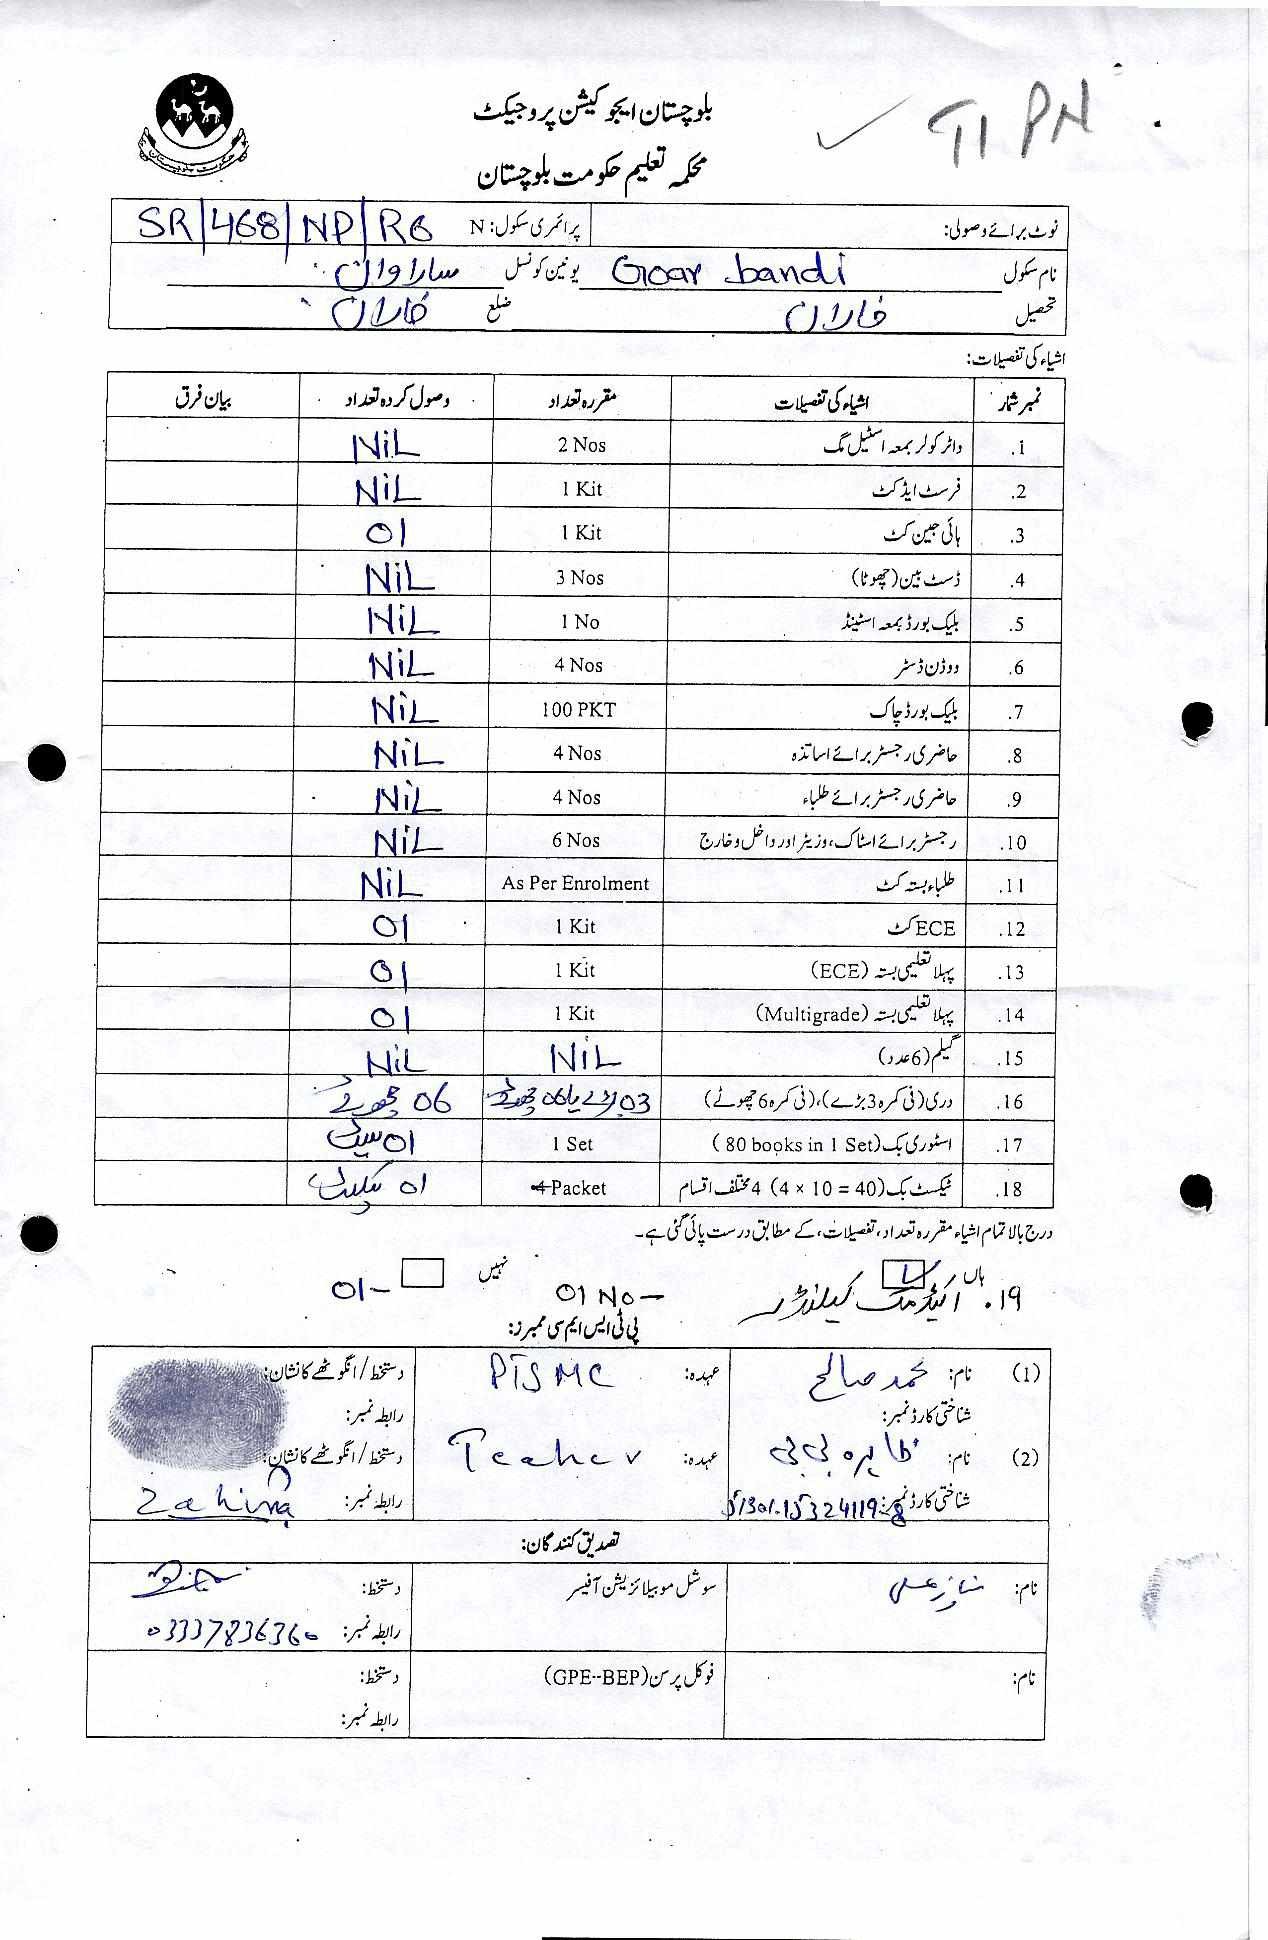 TIPN
بلوچستان ایجوکیشن پروجیکٹ
محکمہ تعلیم حکومت بلوچستان
نوٹ برائے وصولی: پرائمری سکول: N SR/468/NP/R6
نام سکول Goar bandi یونین کونسل ساراوان
تحصیل خاران ضلع خاران
اشیاء کی تفصیلات:
نمبر شمار اشیاء کی تفصیلات مقررہ تعداد وصول کردہ تعداد بیان فرق
1. واٹر کولر بمعہ اسٹیل مگ 2 Nos NiL
2. فرسٹ ایڈ کٹ 1 Kit NiL
3. ہائی جین کٹ 1 Kit 01
4. ڈسٹ بین (چھوٹا) 3 Nos NiL
5. بلیک بورڈ بمعہ اسٹینڈ 1 No NiL
6. ووڈن ڈسٹر 4 Nos NiL
7. بلیک بورڈ چاک 100 PKT NiL
8. حاضری رجسٹر برائے اساتذہ 4 Nos NiL
9. حاضری رجسٹر برائے طلباء 4 Nos NiL
10. رجسٹر برائے اسٹاک، وزیٹر اور داخل و خارج 6 Nos NiL
11. طلباء بستہ کٹ As Per Enrolment NiL
12. ECE کٹ 1 Kit 01
13. پہلا تعلیمی بستہ (ECE) 1 Kit 01
14. پہلا تعلیمی بستہ (Multigrade) 1 Kit 01
15. گلیم (6 عدد) NiL NiL
16. دری (فی کمرہ 3 بڑے)، (فی کمرہ 6 چھوٹے) 03 بڑے یا 06 چھوٹے 06 چھوٹے
17. اسٹوری بک (80 books in 1 Set) 1 Set 01 سیٹ
18. ٹیکسٹ بک (4 × 10 = 40) 4 مختلف اقسام 4 Packet 01 پیکٹ
درج بالا تمام اشیاء مقررہ تعداد، تفصیلات، کے مطابق درست پائی گئی ہے۔
ہاں نہیں
۱۹. اکیڈمک کیلنڈر 01 No — 01 —
پی ٹی ایس ایم سی ممبرز:
(1) نام: محمد صالح عہدہ: PTSMC دستخط/انگوٹھے کا نشان:
شناختی کارڈ نمبر: رابطہ نمبر:
(2) نام: بی بی عہدہ: Teaher دستخط/انگوٹھے کا نشان:
شناختی کارڈ نمبر: 51301-15324119-8 رابطہ نمبر: Zahira
تصدیق کنندگان:
نام: سوشل موبیلائزیشن آفیسر دستخط:
رابطہ نمبر: 03337836360
نام: فوکل پرسن (GPE--BEP) دستخط:
رابطہ نمبر: